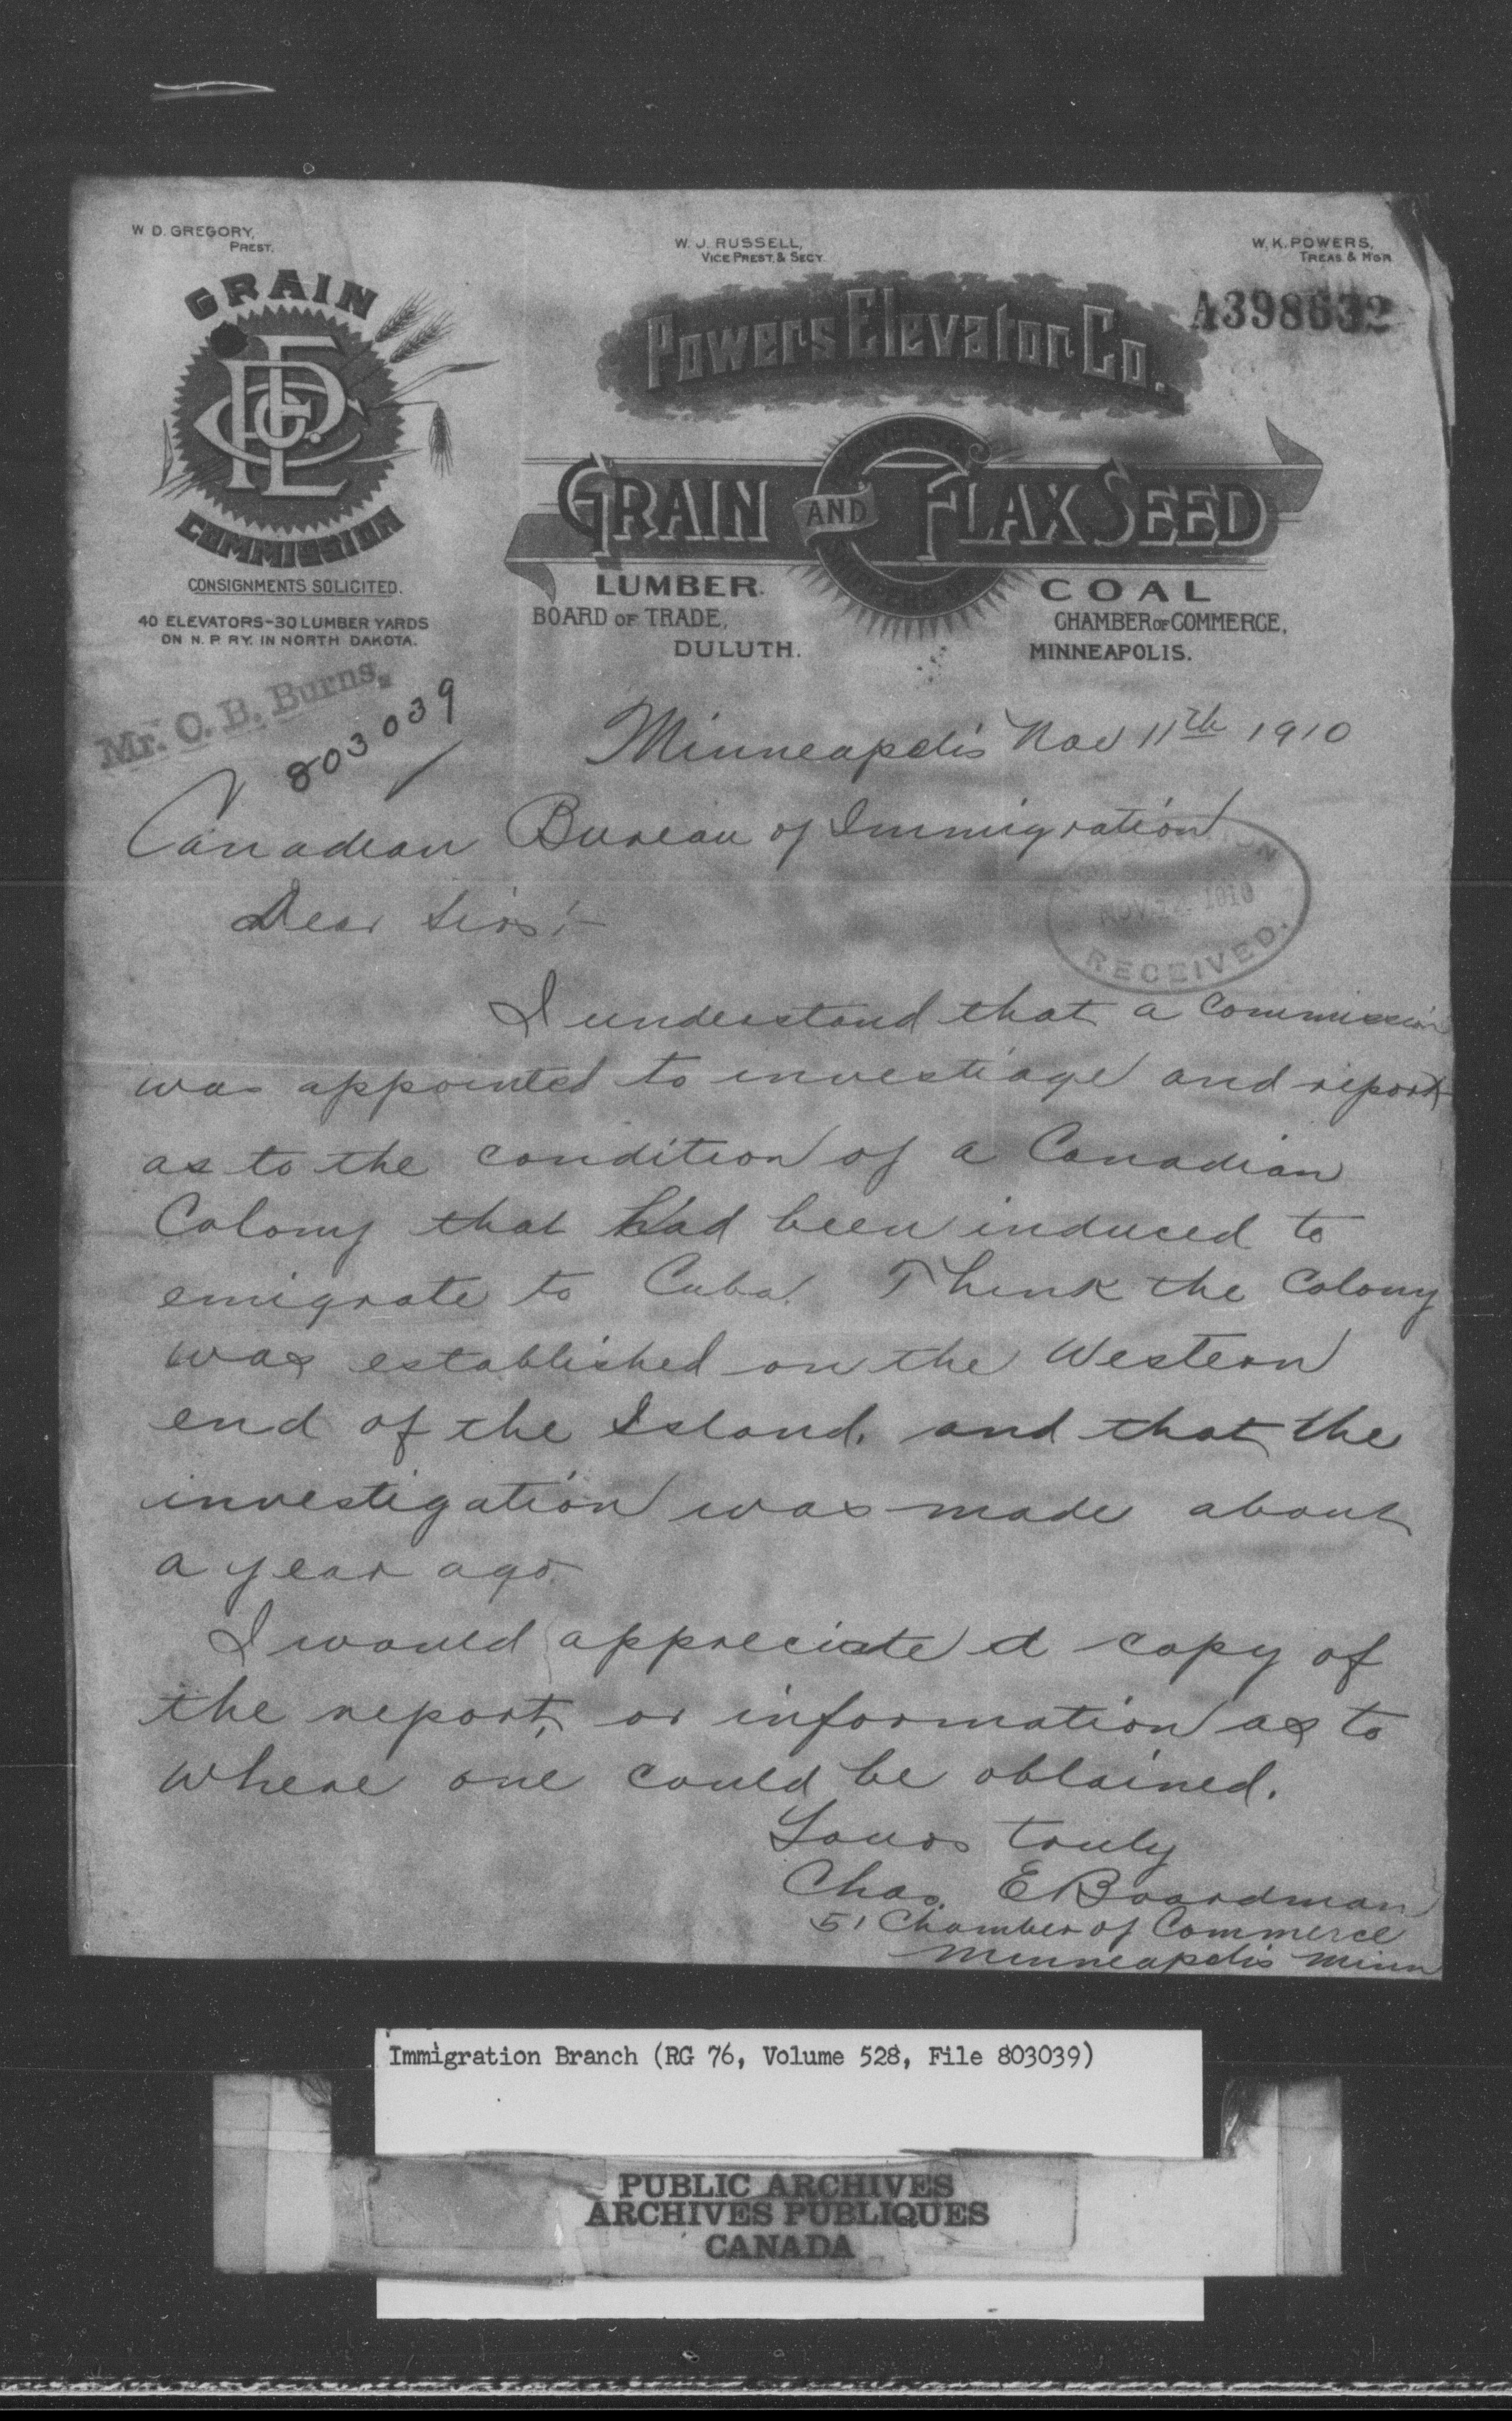 W. D. GREGORY,
PREST.
W. J. RUSSELL,
VICE PREST. & SECY.
W. K. POWERS,
TREAS. & M'GR.
GRAIN
PECo.
COMMISSION
CONSIGNMENTS SOLICITED.
40 ELEVATORS-30 LUMBER YARDS
ON N. P. RY. IN NORTH DAKOTA.
Powers Elevator Co.
A398632
GRAIN AND FLAX SEED
LUMBER. COAL
BOARD OF TRADE,
DULUTH.
CHAMBER OF COMMERCE,
MINNEAPOLIS.
Mr. O. B. Burns,
803039
Minneapolis Nov 11th 1910
Canadian Bureau of Immigration
Dear Sirs:-
NOV 1910
RECEIVED.
I understand that a Commission
was appointed to investiage and report
as to the condition of a Canadian
Colony that had been induced to
emigrate to Cuba. Think the Colony
was established on the Western
end of the Island. and that the
investigation was made about
a year ago.
I would appreciate a copy of
the report, or information as to
where one could be obtained.
Yours truly
Chas. E Boardman
51 Chamber of Commerce
Minneapolis Minn
Immigration Branch (RG 76, Volume 528, File 803039)
PUBLIC ARCHIVES
ARCHIVES PUBLIQUES
CANADA